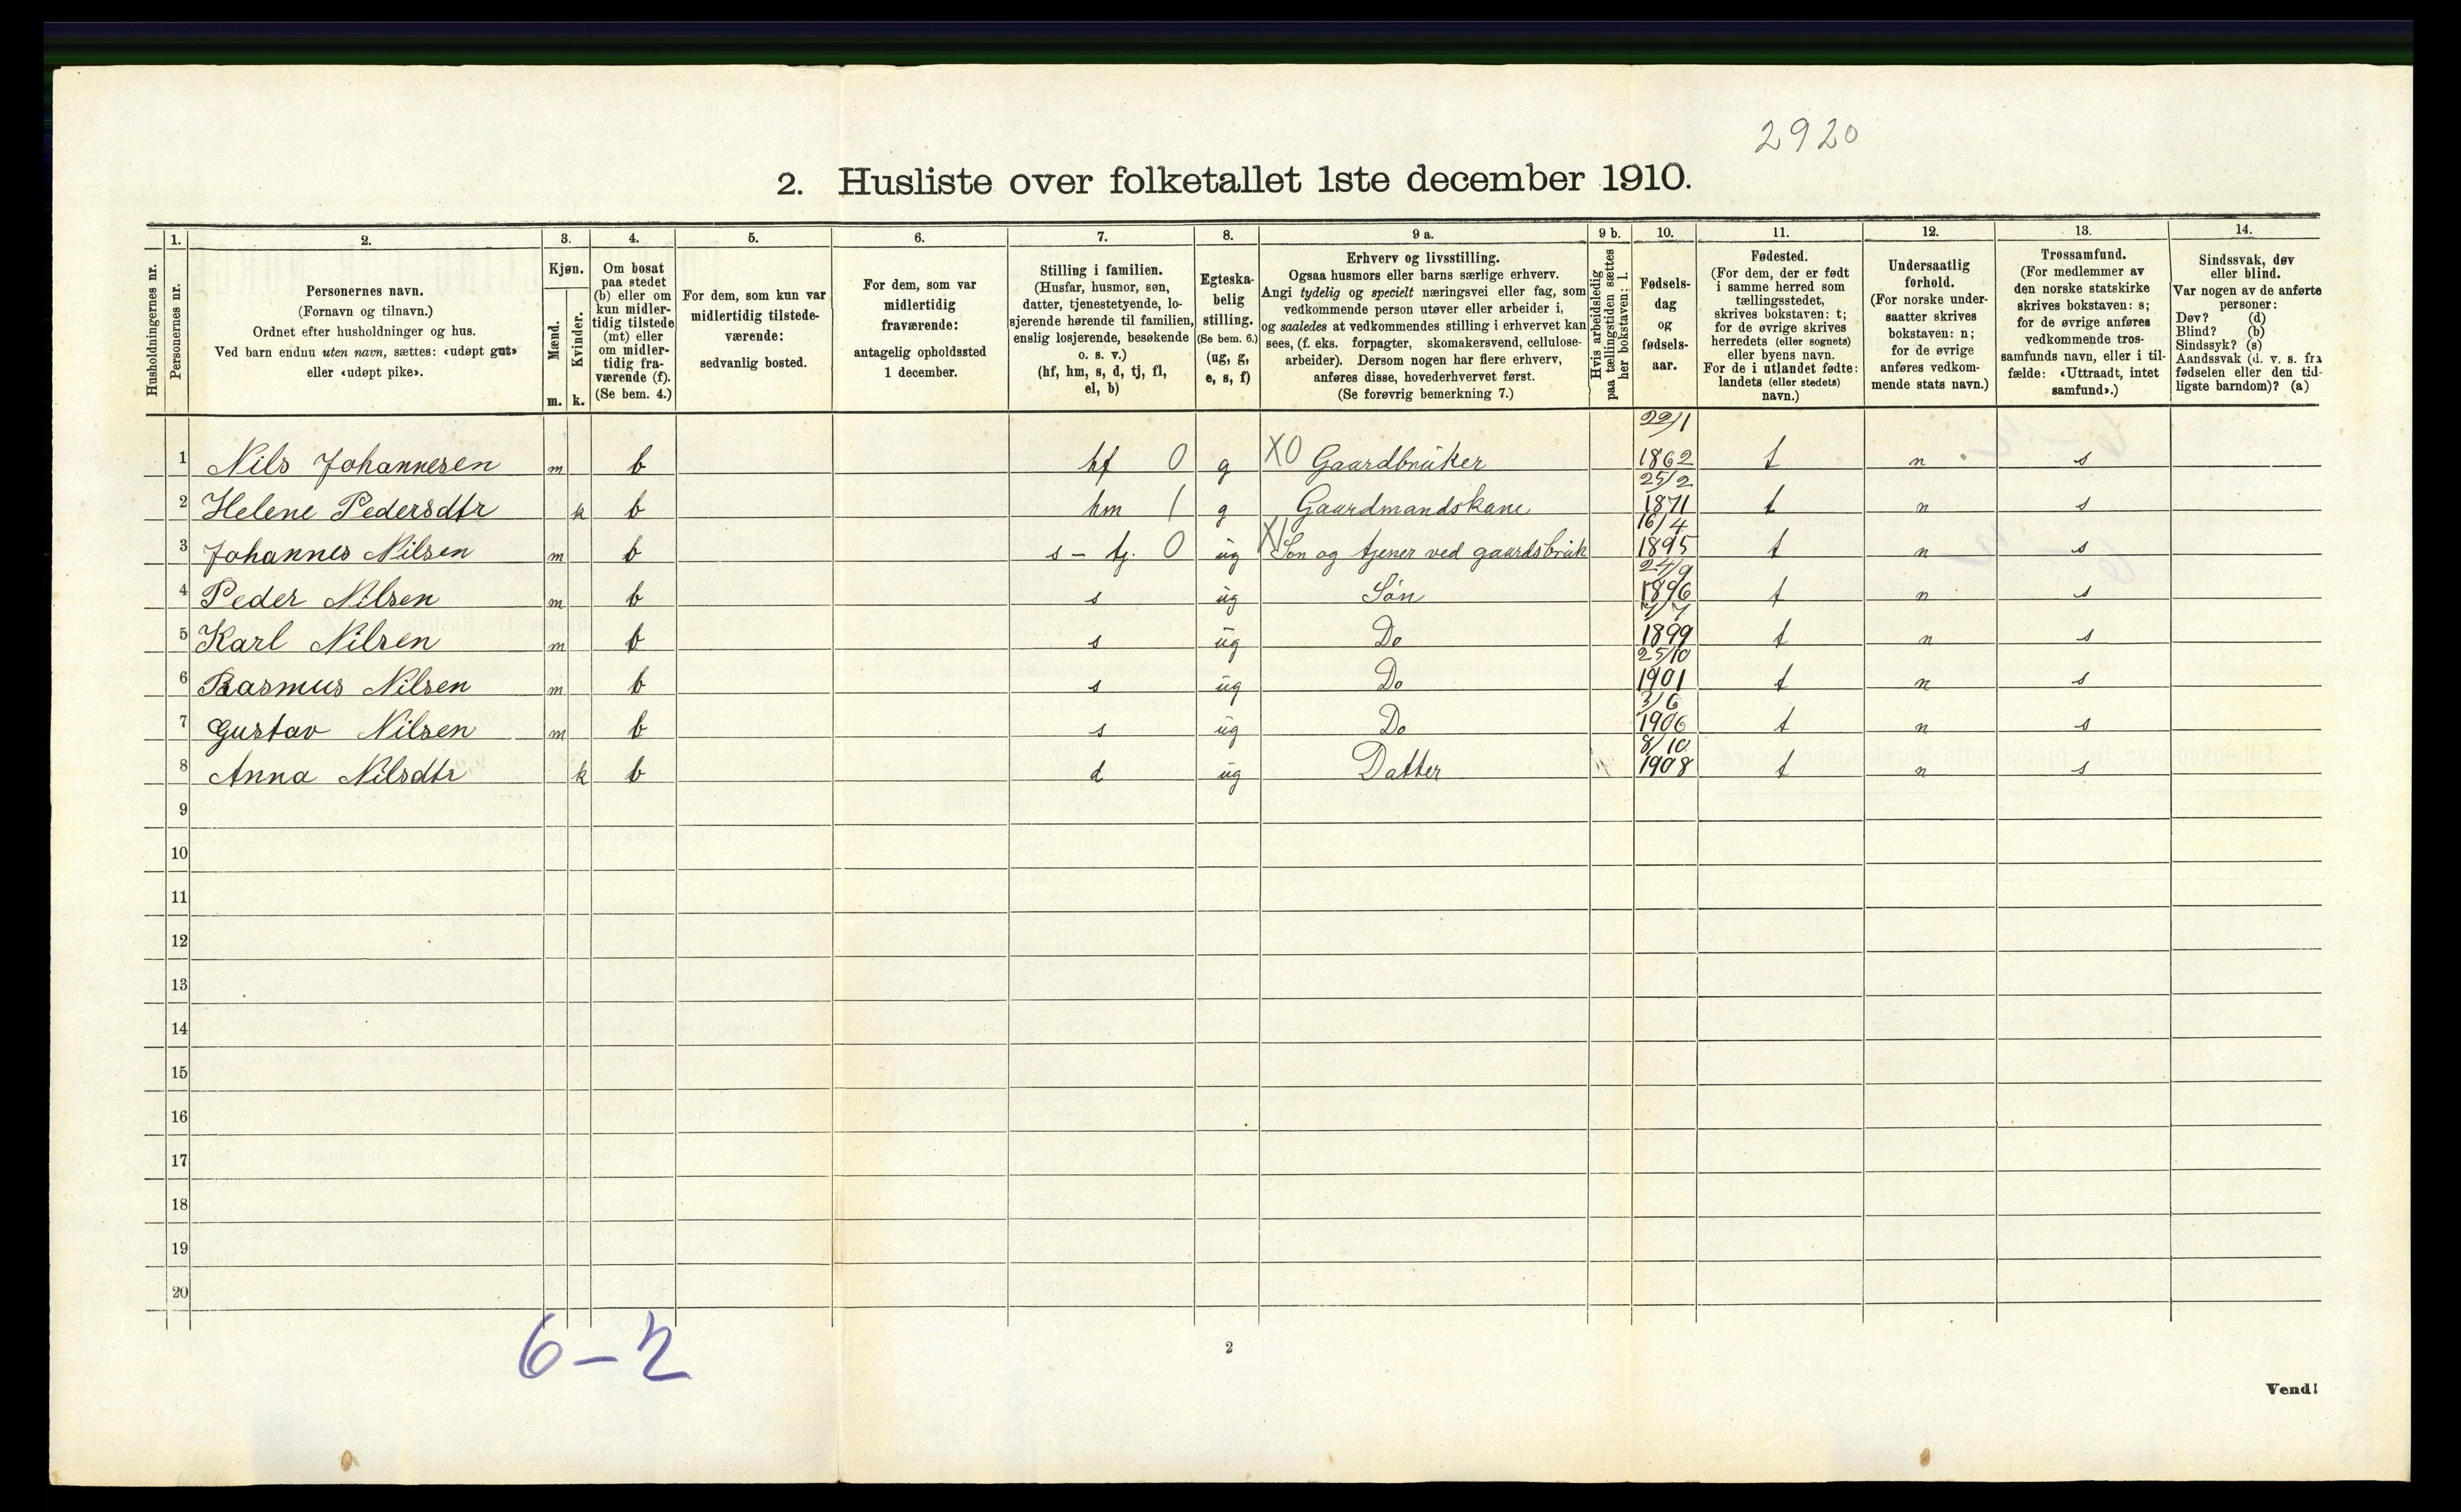 2920
2. Husliste over folketallet 1ste december 1910.
Husholdningernes nr.
1. Personernes nr.
2. Personernes navn.
(Fornavn og tilnavn.)
Ordnet efter husholdninger og hus.
Ved barn endnu uten navn, sættes: «udøpt gut»
eller «udøpt pike».
3. Kjøn.
Mænd. m.
Kvinder. k.
4. Om bosat
paa stedet
(b) eller om
kun midler-
tidig tilstede
(mt) eller
om midler-
tidig fra-
værende (f).
(Se bem. 4.)
5. For dem, som kun var
midlertidig tilstede-
værende:
sedvanlig bosted.
6. For dem, som var
midlertidig
fraværende:
antagelig opholdssted
1 december.
7. Stilling i familien.
(Husfar, husmor, søn,
datter, tjenestetyende, lo-
sjerende hørende til familien,
enslig losjerende, besøkende
o. s. v.)
(hf, hm, s, d, tj, fl,
el, b)
8. Egteska-
belig
stilling.
(Se bem. 6.)
(ug, g,
e, s, f)
9 a. Erhverv og livsstilling.
Ogsaa husmors eller barns særlige erhverv.
Angi tydelig og specielt næringsvei eller fag, som
vedkommende person utøver eller arbeider i,
og saaledes at vedkommendes stilling i erhvervet kan
sees, (f. eks. forpagter, skomakersvend, cellulose-
arbeider). Dersom nogen har flere erhverv,
anføres disse, hovederhvervet først.
(Se forøvrig bemerkning 7.)
9 b. Hvis arbeidsledig
paa tællingstiden sættes
her bokstaven: l.
10. Fødsels-
dag
og
fødsels-
aar.
11. Fødested.
(For dem, der er født
i samme herred som
tællingsstedet,
skrives bokstaven: t;
for de øvrige skrives
herredets (eller sognets)
eller byens navn.
For de i utlandet fødte:
landets (eller stedets)
navn.)
12. Undersaatlig
forhold.
(For norske under-
saatter skrives
bokstaven: n;
for de øvrige
anføres vedkom-
mende stats navn.)
13. Trossamfund.
(For medlemmer av
den norske statskirke
skrives bokstaven: s;
for de øvrige anføres
vedkommende tros-
samfunds navn, eller i til-
fælde: «Uttraadt, intet
samfund».)
14. Sindssvak, døv
eller blind.
Var nogen av de anførte
personer:
Døv? (d)
Blind? (b)
Sindssyk? (s)
Aandssvak (d. v. s. fra
fødselen eller den tid-
ligste barndom)? (a)
1 Nils Johannesen m b hf 0 g X0 Gaardbruker 22/1 1862 t n s
2 Helene Pedersdtr k b hm 1 g Gaardmandskone 25/2 1871 t n s
3 Johannes Nilsen m b s - tj. 0 ug X1 Søn og tjener ved gaardsbruk 16/4 1895 t n s
4 Peder Nilsen m b s ug Søn 24/9 1896 t n s
5 Karl Nilsen m b s ug Do 1899 t n s
6 Rasmus Nilsen m b s ug Do 25/10 1901 t n s
7 Gustav Nilsen m b s ug Do 3/6 1906 t n s
8 Anna Nilsdtr k b d ug Datter 8/10 1908 t n s
9
10
11
12
13
14
15
16
17
18
19
20
6-2
2
Vend!